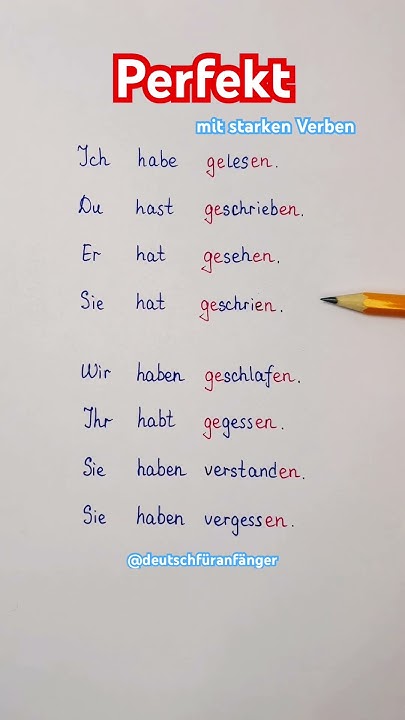 Perfekt
mit starken Verben
Ich habe gelesen.
Du hast geschrieben.
Er hat gesehen.
Sie hat geschrien.
Wir haben geschlafen.
Ihr habt gegessen.
Sie haben verstanden.
Sie haben vergessen.
@deutschfüranfänger